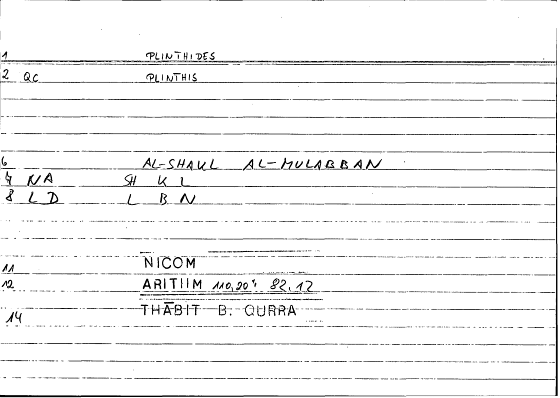 1 PLINTHIDES
2 QC PLINTHIS
6 AL-SHAKL AL-MULABBAN
7 NA SH K L
8 LD L B N
11 NICOM
12 ARITIIM 110,20: 82,12
14 THĀBIT B. QURRA